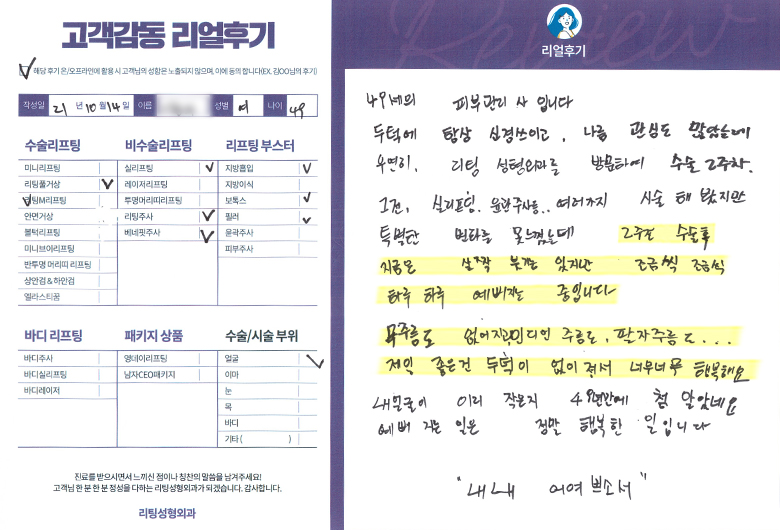 고객감동 리얼후기
해당 후기 온/오프라인에 활용 시 고객님의 성함은 노출되지 않으며, 이에 동의 합니다(EX. 김OO님의 후기)
작성일 21 년 10 월 14 일 이름 성별 여 나이 49
수술리프팅
미니리프팅
리팅풀거상
리팅M리프팅
안면거상
볼턱리프팅
미니브이리프팅
반투명 머리띠 리프팅
상안검 & 하안검
엘라스티꿈
비수술리프팅
실리프팅
레이저리프팅
투명머리띠리프팅
리팅주사
베네핏주사
리프팅 부스터
지방흡입
지방이식
보톡스
필러
윤곽주사
피부주사
바디 리프팅
바디주사
바디실리프팅
바디레이저
패키지 상품
영데이리프팅
남자CEO패키지
수술/시술 부위
얼굴
이마
눈
목
바디
기타 ( )
진료를 받으시면서 느끼신 점이나 칭찬의 말씀을 남겨주세요!
고객님 한 분 한 분 정성을 다하는 리팅성형외과가 되겠습니다. 감사합니다.
리팅성형외과
Review
리얼후기
49세의 피부관리사 입니다
두턱에 항상 신경쓰이고, 나름 관심도 많았는데
우연히, 리팅 성형외과를 방문하여 수술 2주차.
그전, 실리프팅. 윤곽주사등.. 여러가지 시술 해 봤지만
특별한 변화를 못느꼈는데 2주전 수술후
지금은 살짝 부기는 있지만 조금씩 조금씩
하루 하루 예뻐지는 중입니다
목주름도 없어지고 인디언 주름도, 팔자주름도...
제일 좋은건 두턱이 없어져서 너무너무 행복해요
내얼굴이 이리 작은지 49년만에 첨 알았네요
예뻐 지는 일은 정말 행복한 일입니다
"내내 어여쁘소서"